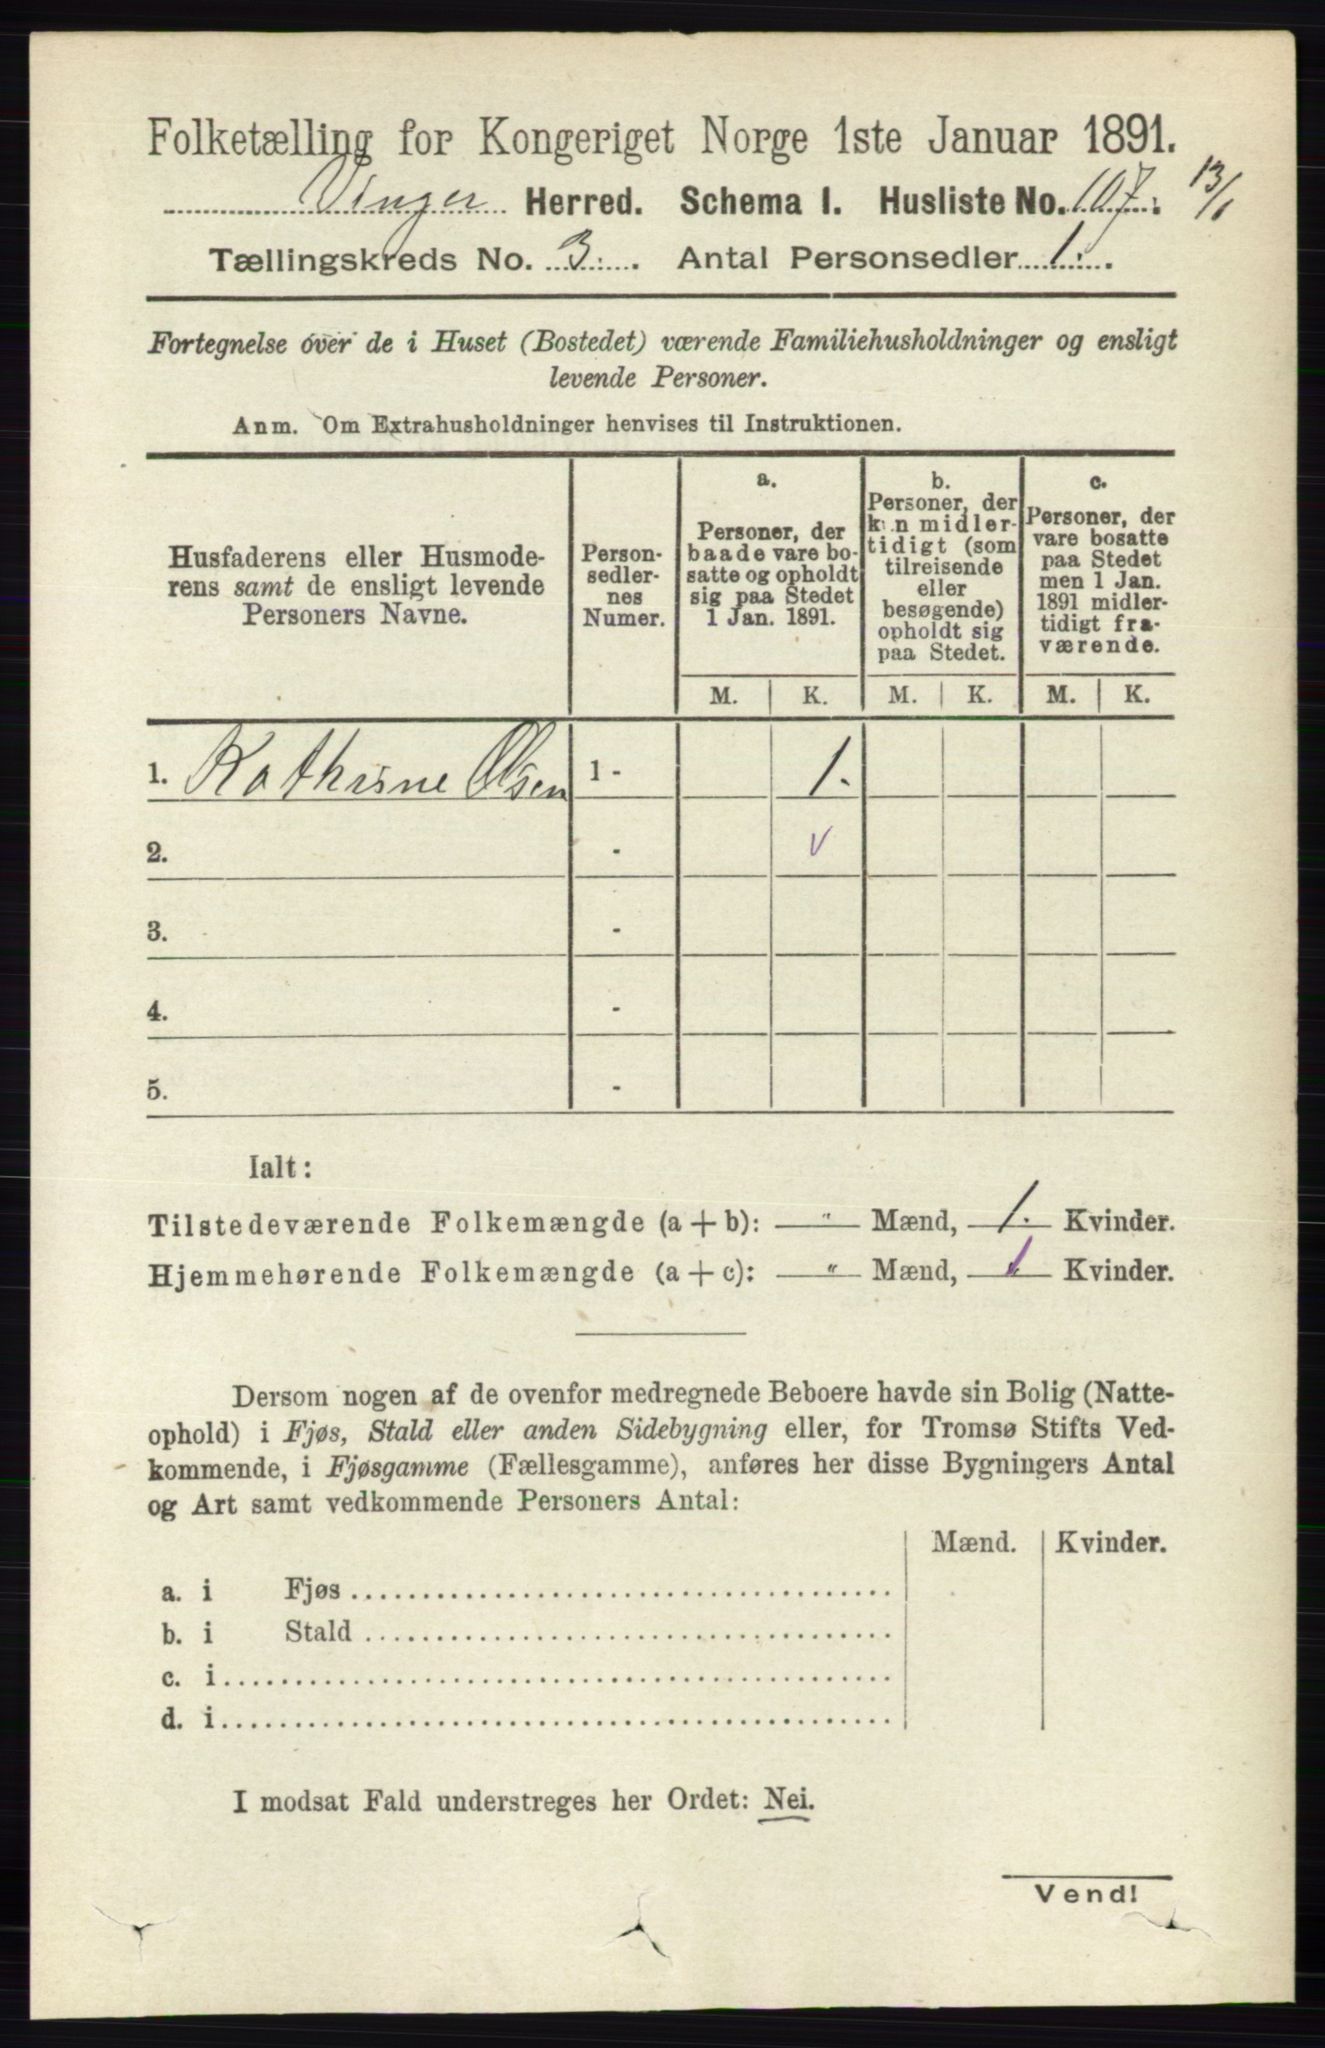 Folketælling for Kongeriget Norge 1ste Januar 1891.
Vinger Herred. Schema I. Husliste No. 107. 13/1
Tællingskreds No. 3. Antal Personsedler 1.
Fortegnelse over de i Huset (Bostedet) værende Familiehusholdninger og ensligt
levende Personer.
Anm. Om Extrahusholdninger henvises til Instruktionen.
Husfaderens eller Husmode-
rens samt de ensligt levende
Personers Navne.
Person-
sedler-
nes
Numer.
a.
Personer, der
baade vare bo-
satte og opholdt
sig paa Stedet
1 Jan. 1891.
b.
Personer, der
kun midler-
tidigt (som
tilreisende
eller
besøgende)
opholdt sig
paa Stedet.
c.
Personer, der
vare bosatte
paa Stedet
men 1 Jan.
1891 midler-
tidigt fra-
værende.
M. K. M. K. M. K.
1. Kathrine Olsen 1 - 1.
2. - v
3. -
4. -
5. -
Ialt:
Tilstedeværende Folkemængde (a + b): " Mænd, 1. Kvinder.
Hjemmehørende Folkemængde (a + c): " Mænd, 1 Kvinder.
Dersom nogen af de ovenfor medregnede Beboere havde sin Bolig (Natte-
ophold) i Fjøs, Stald eller anden Sidebygning eller, for Tromsø Stifts Ved-
kommende, i Fjøsgamme (Fællesgamme), anføres her disse Bygningers Antal
og Art samt vedkommende Personers Antal:
Mænd. Kvinder.
a. i Fjøs
b. i Stald
c. i
d. i
I modsat Fald understreges her Ordet: Nei.
Vend!